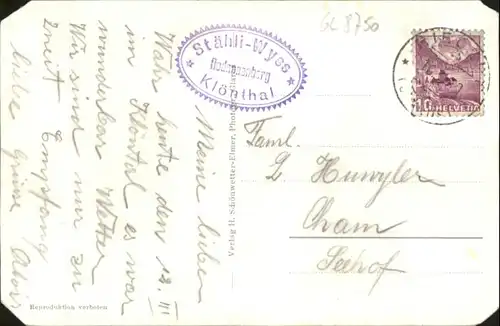 GL 8750
Stähli-Wyss
Klönthal
10 HELVETIA
Meine lieben
Wahr heute den 13. III
im Klöntal es war
wunderbar Wetter
Wir sind nur zu
zweit Empfang
liebe Grüsse Alois
Verlag H. Schönwetter-Elmer, Photograph
Faml.
Hunzyler
Cham
Seehof
Reproduktion verboten